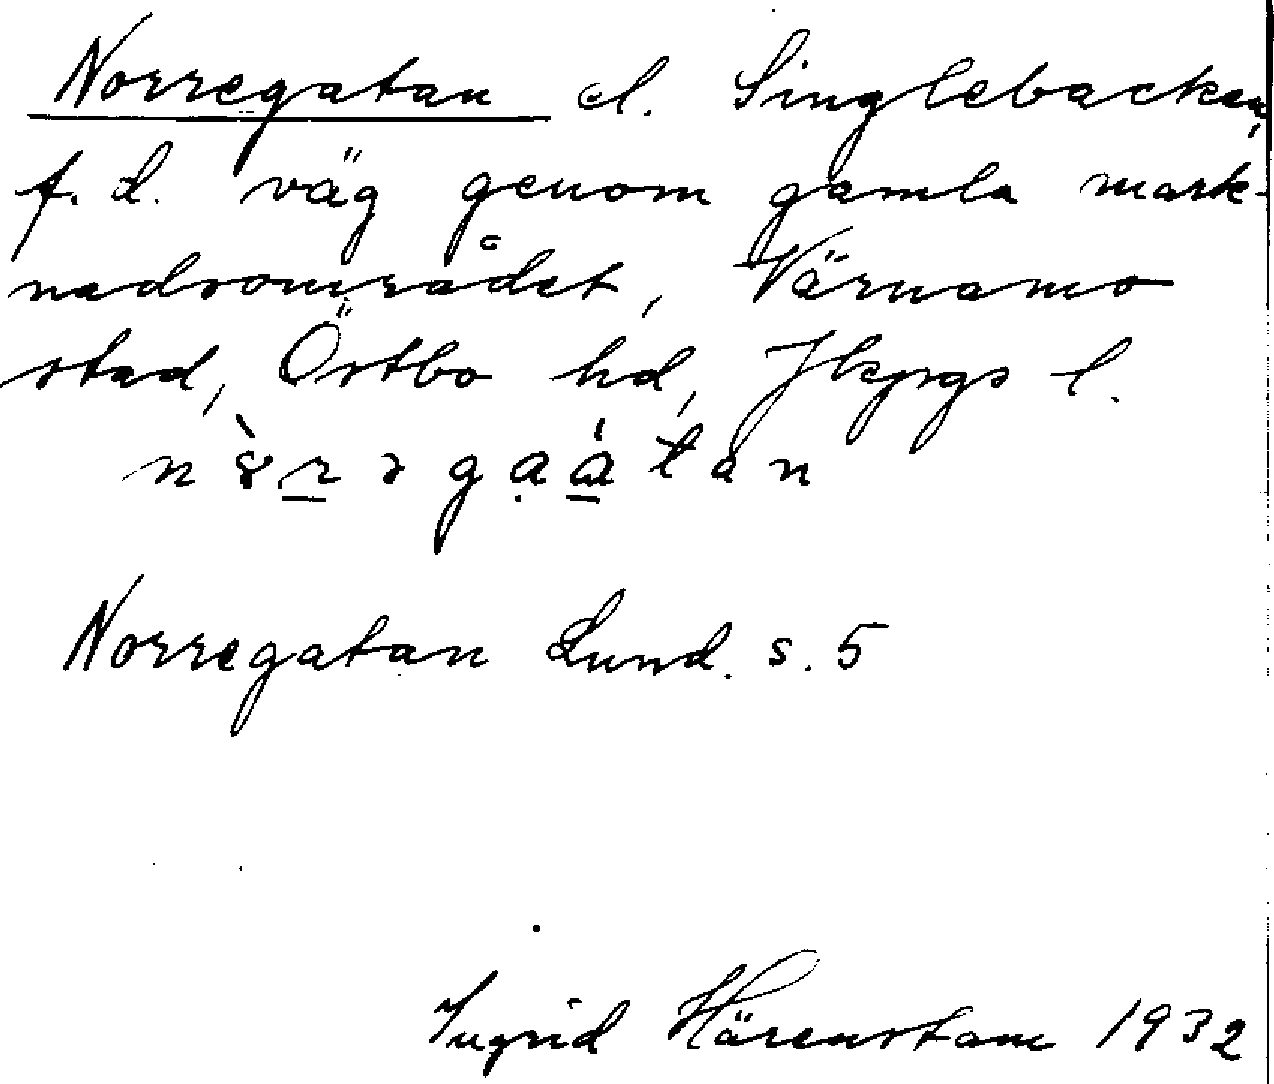 Norregatan el. Singlebacken,
f. d. väg genom gamla mark-
nadsområdet, Värnamo
stad, Östbo hd, Jkpgs l.
Norregatan Lund. s. 5
Ingrid Härenstam 1932